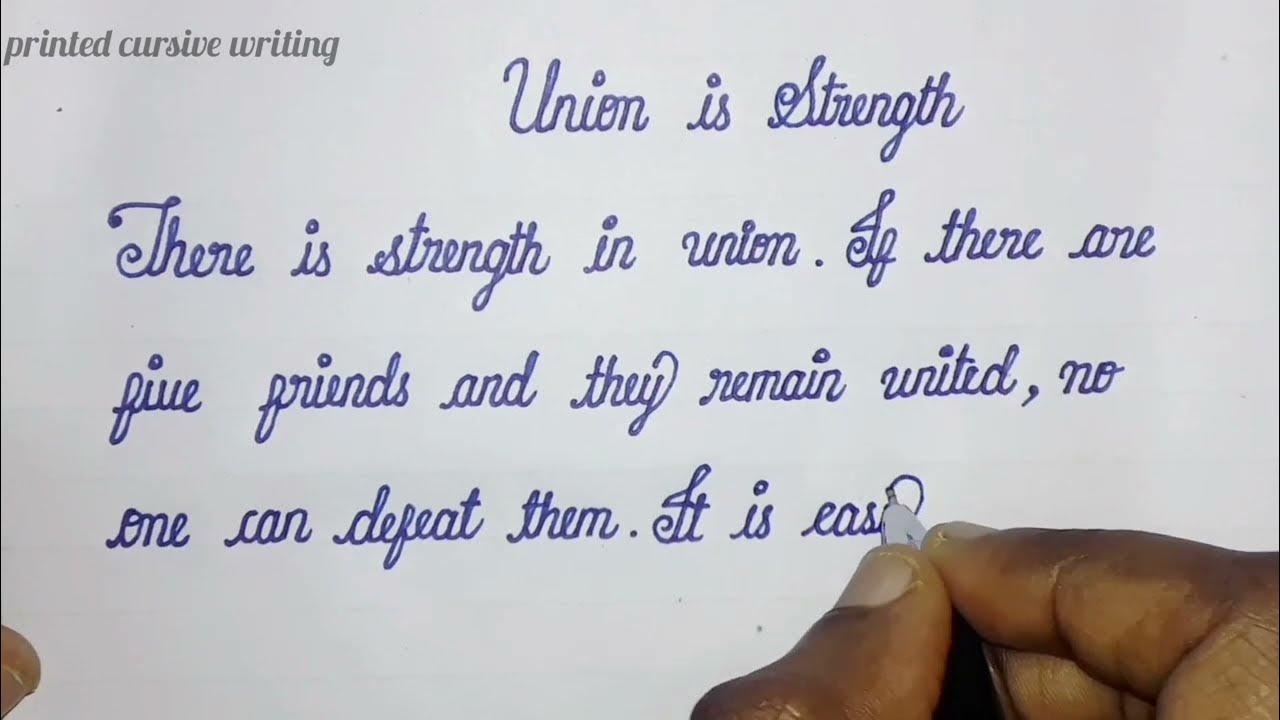 printed cursive writing
Union is Strength
There is strength in union. If there are
five friends and they remain united, no
one can defeat them. It is eas